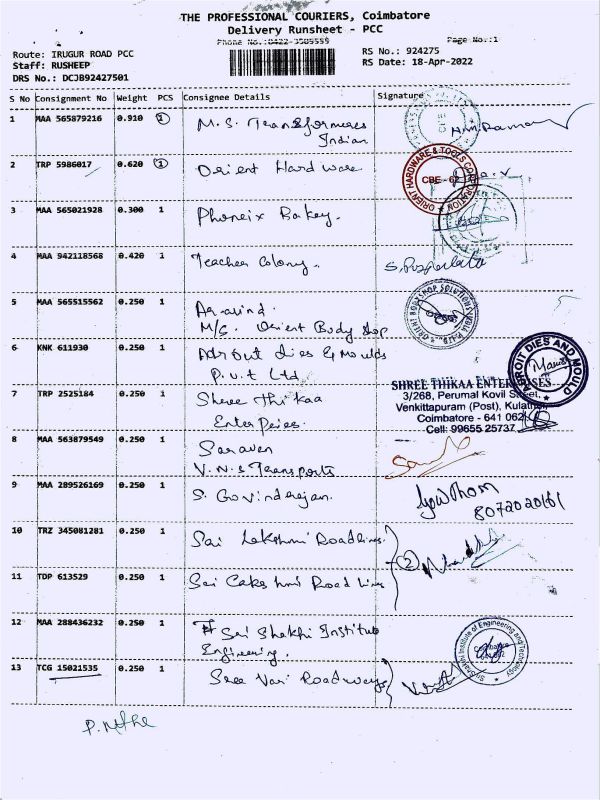 THE PROFESSIONAL COURIERS, Coimbatore
Delivery Runsheet - PCC
Phone No.:0422-3585559 Page No.:1
Route: IRUGUR ROAD PCC RS No.: 924275
Staff: RUSHEEP RS Date: 18-Apr-2022
DRS No.: DCJB92427501
S No Consignment No Weight PCS Consignee Details Signature
1 MAA 565879216 0.910 1 M.S. Transformeres
Indian
2 TRP 5986017 0.620 1 Orient Hardware
ORIENT HARDWARE & TOOLS CORPORATION
CBE - 62
3 MAA 565021928 0.300 1 Phoneix Bakey.
4 MAA 942118568 0.420 1 Teacher Colony. S. Pusperlata
5 MAA 565515562 0.250 1 Aravind.
M/S. Orient Body Shop
6 KNK 611930 0.250 1 Adroit dies & Moulds
P.v.t Ltd
ADROIT DIES AND MOULD
7 TRP 2525184 0.250 1 Shree Thikaa
Enterperies.
SHREE THIKAA ENTERPRISES
3/268, Perumal Kovil Street,
Venkittapuram (Post),
Coimbatore - 641 062
Cell: 99655 25737
8 MAA 563879549 0.250 1 Saraven
V.N.S Transports
9 MAA 289526169 0.250 1 S. Govinderajan.
8072020161
10 TRZ 345081281 0.250 1 Sai Lakshmi Roadlines.
2
11 TDP 613529 0.250 1 Sai Cakshmi Road Lines
12 MAA 288436232 0.250 1 # Sri Shakhi Institute
Engineering.
Institute of Engineering and Technology
13 TCG 15021535 0.250 1 Sree Vari Roadways